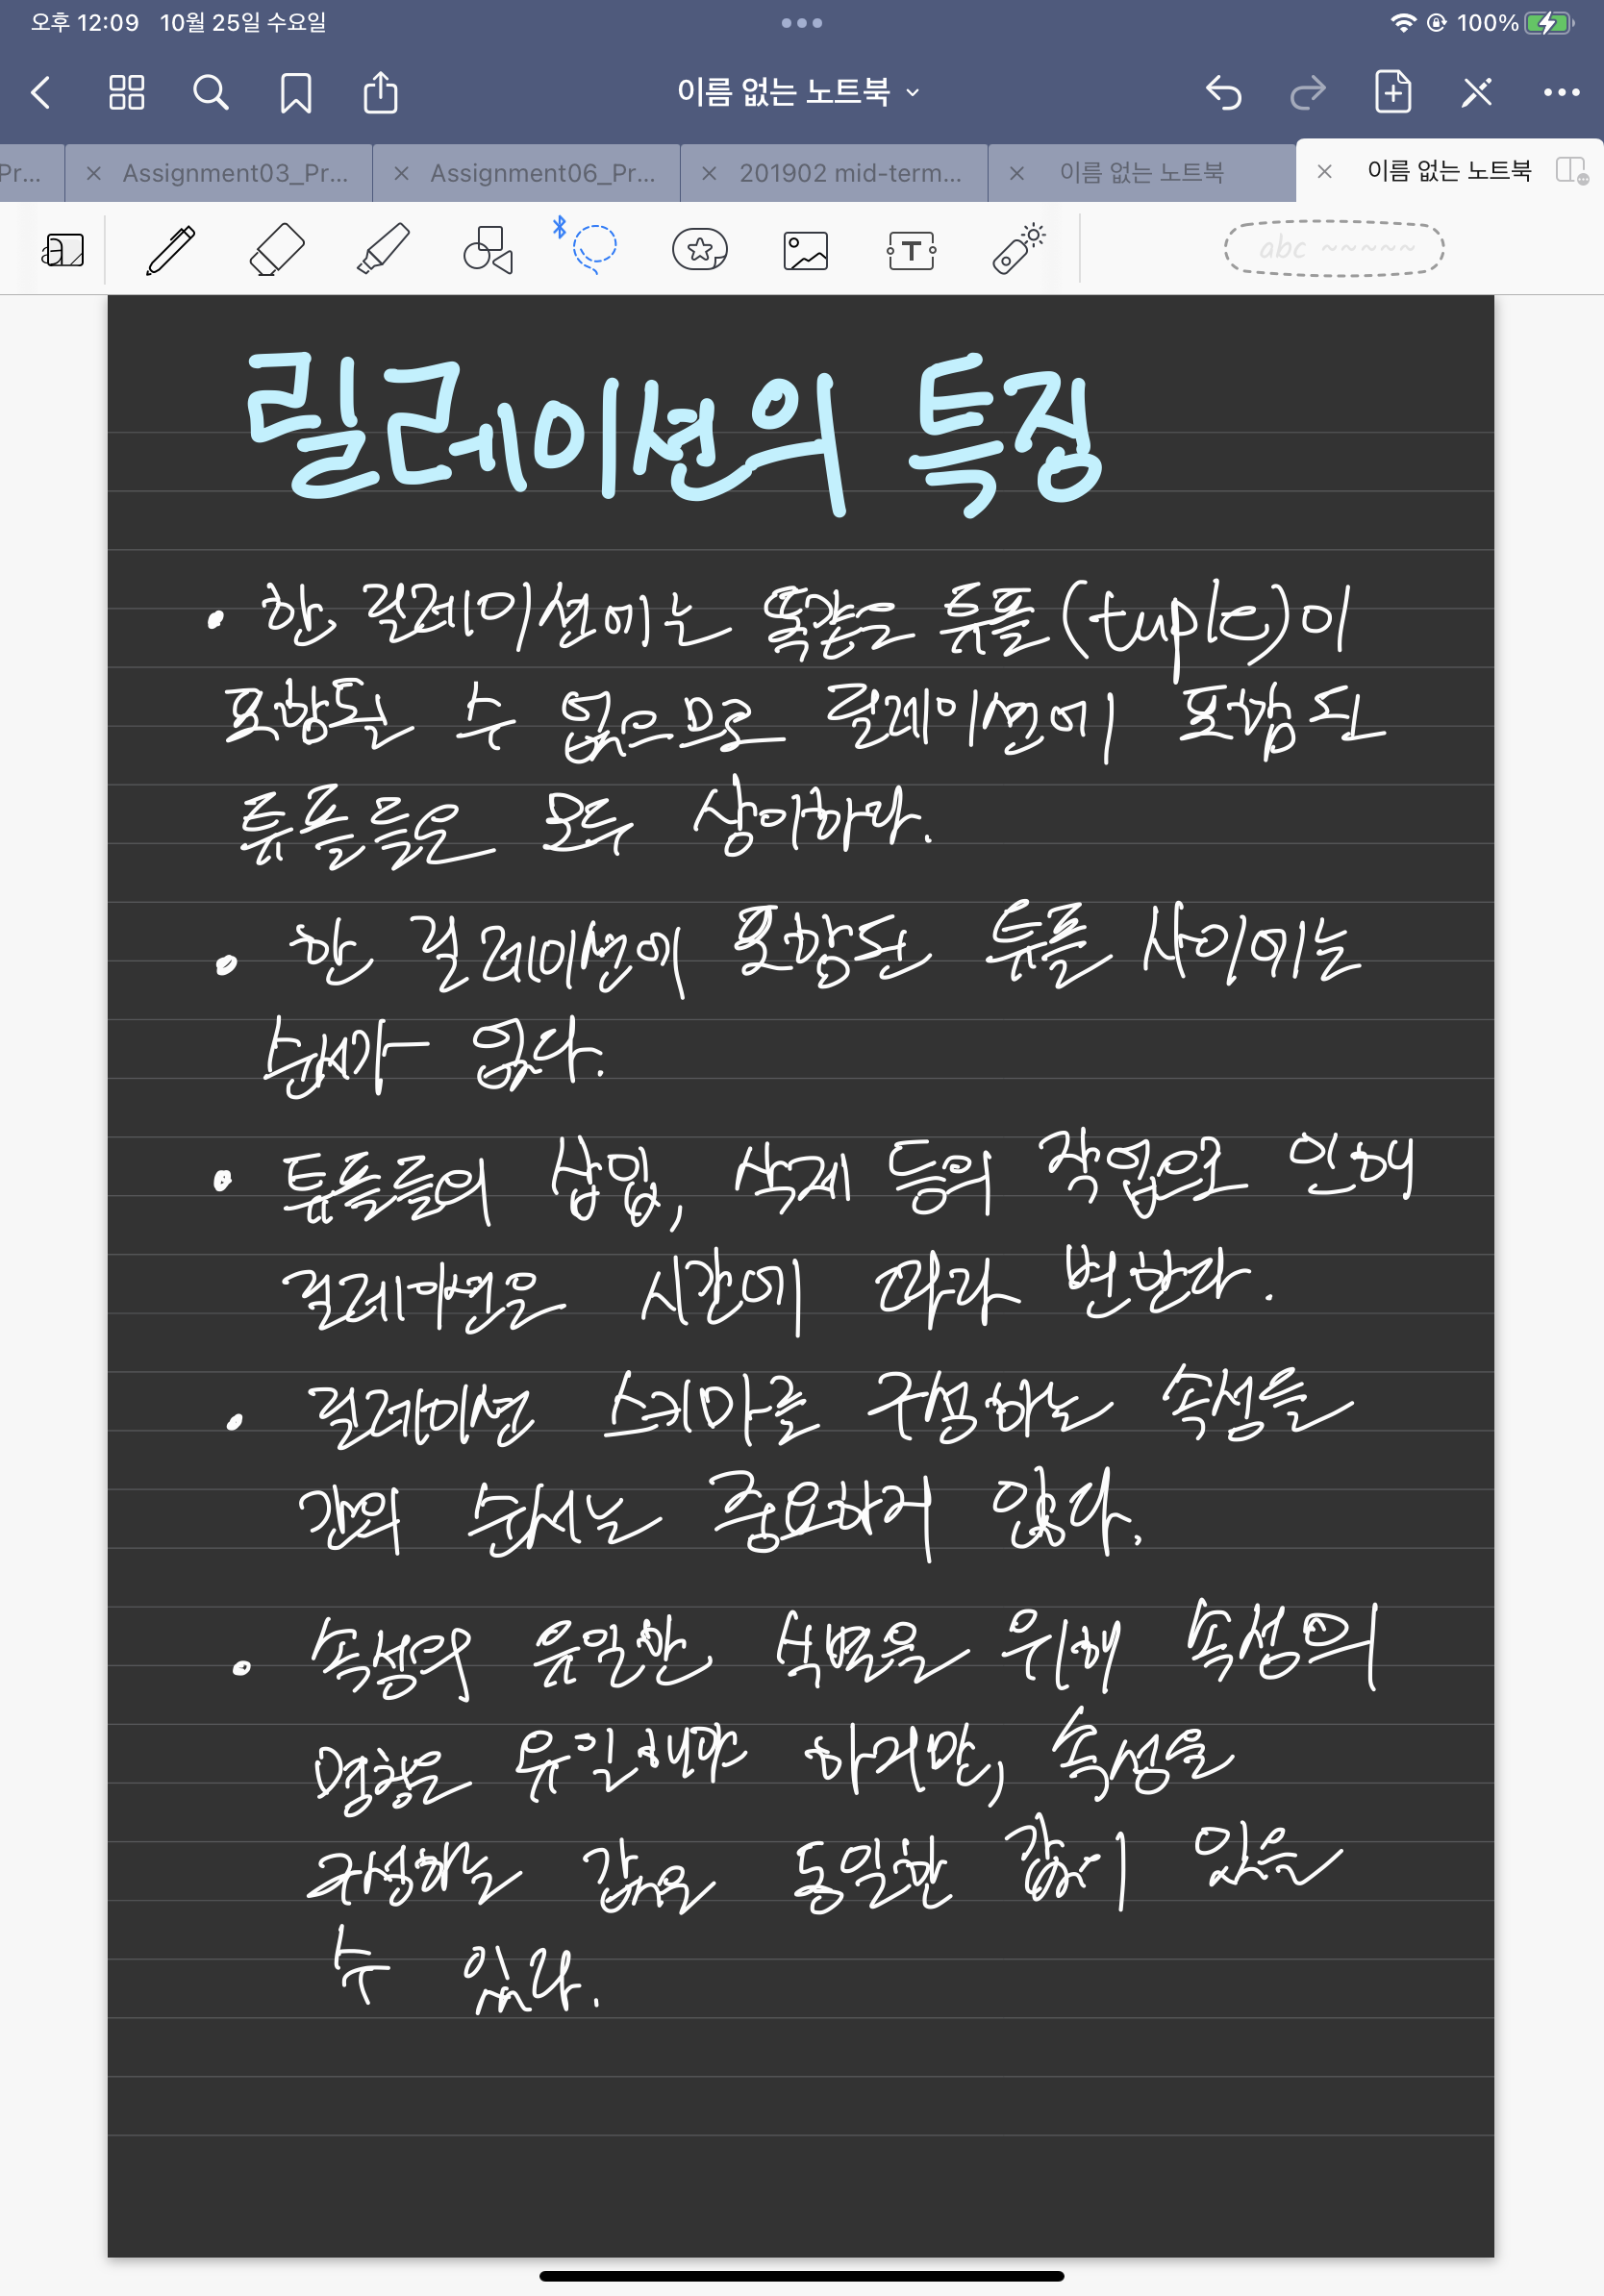 오후 12:09 10월 25일 수요일 100%
이름 없는 노트북
Pr... Assignment03_Pr... Assignment06_Pr... 201902 mid-term... 이름 없는 노트북 이름 없는 노트북
T abc
릴레이션의 특징
• 한 릴레이션에는 똑같은 튜플(tuple)이
포함될 수 없으므로 릴레이션에 포함된
튜플들은 모두 상이하다.
• 한 릴레이션에 포함된 튜플 사이에는
순서가 없다.
• 튜플들의 삽입, 삭제 등의 작업으로 인해
릴레이션은 시간에 따라 변한다.
• 릴레이션 스키마를 구성하는 속성들
간의 순서는 중요하지 않다.
• 속성의 유일한 식별을 위해 속성의
명칭은 유일해야 하지만, 속성을
구성하는 값은 동일한 값이 있을
수 있다.